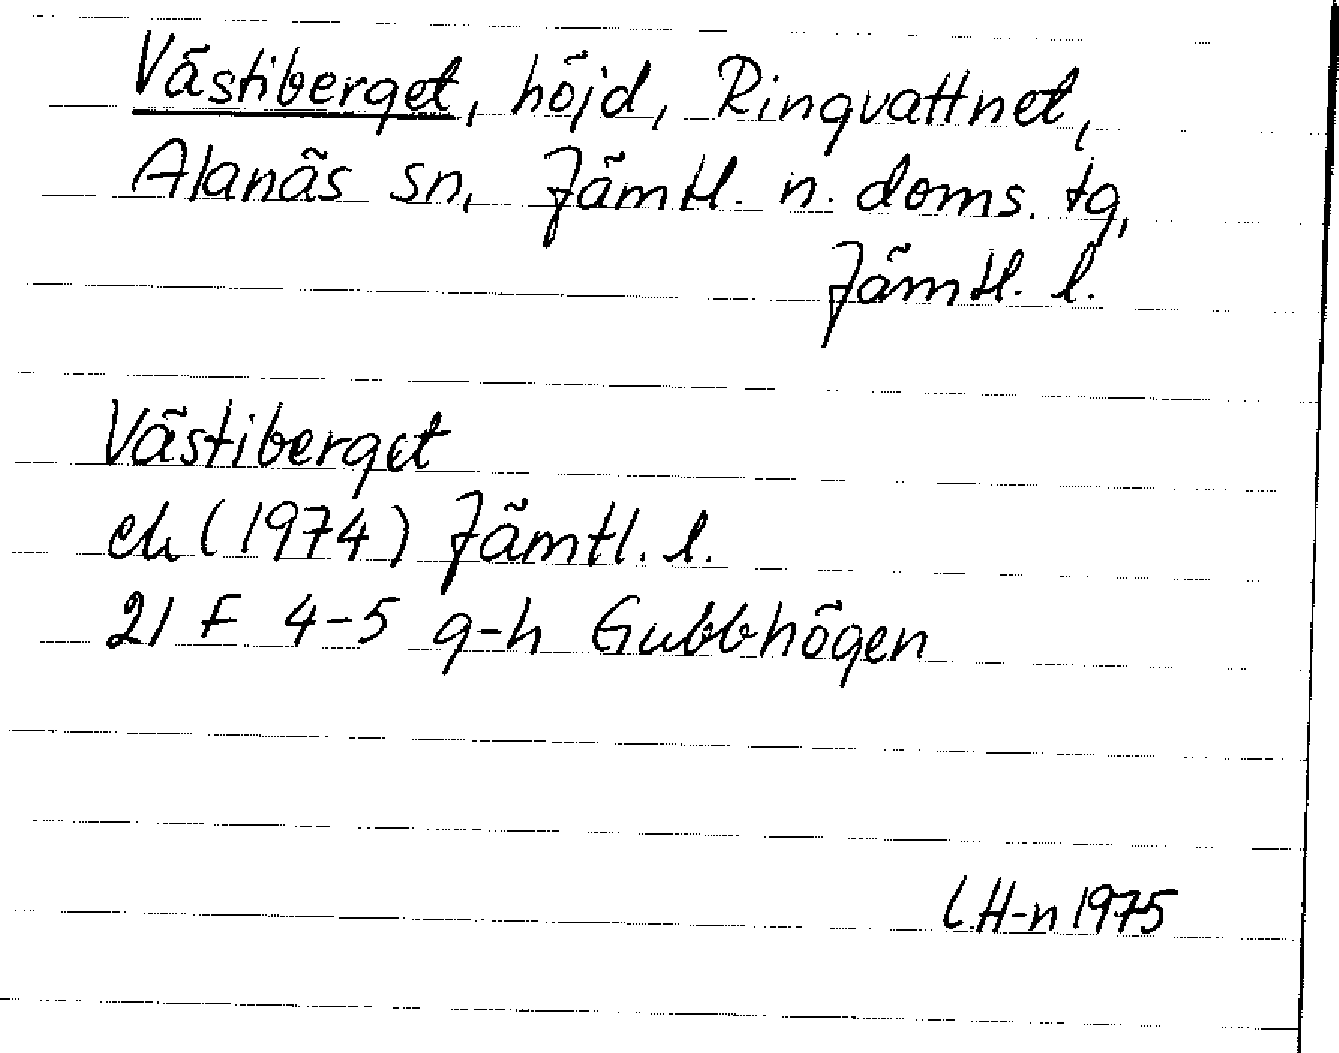 Västiberget, höjd, Ringvattnet,
Alanäs sn, Jämtl. n. doms. tg,
Jämtl. l.
Västiberget
ek (1974) Jämtl. l.
21 F 4-5 g-h Gubbhögen
L.H-n 1975